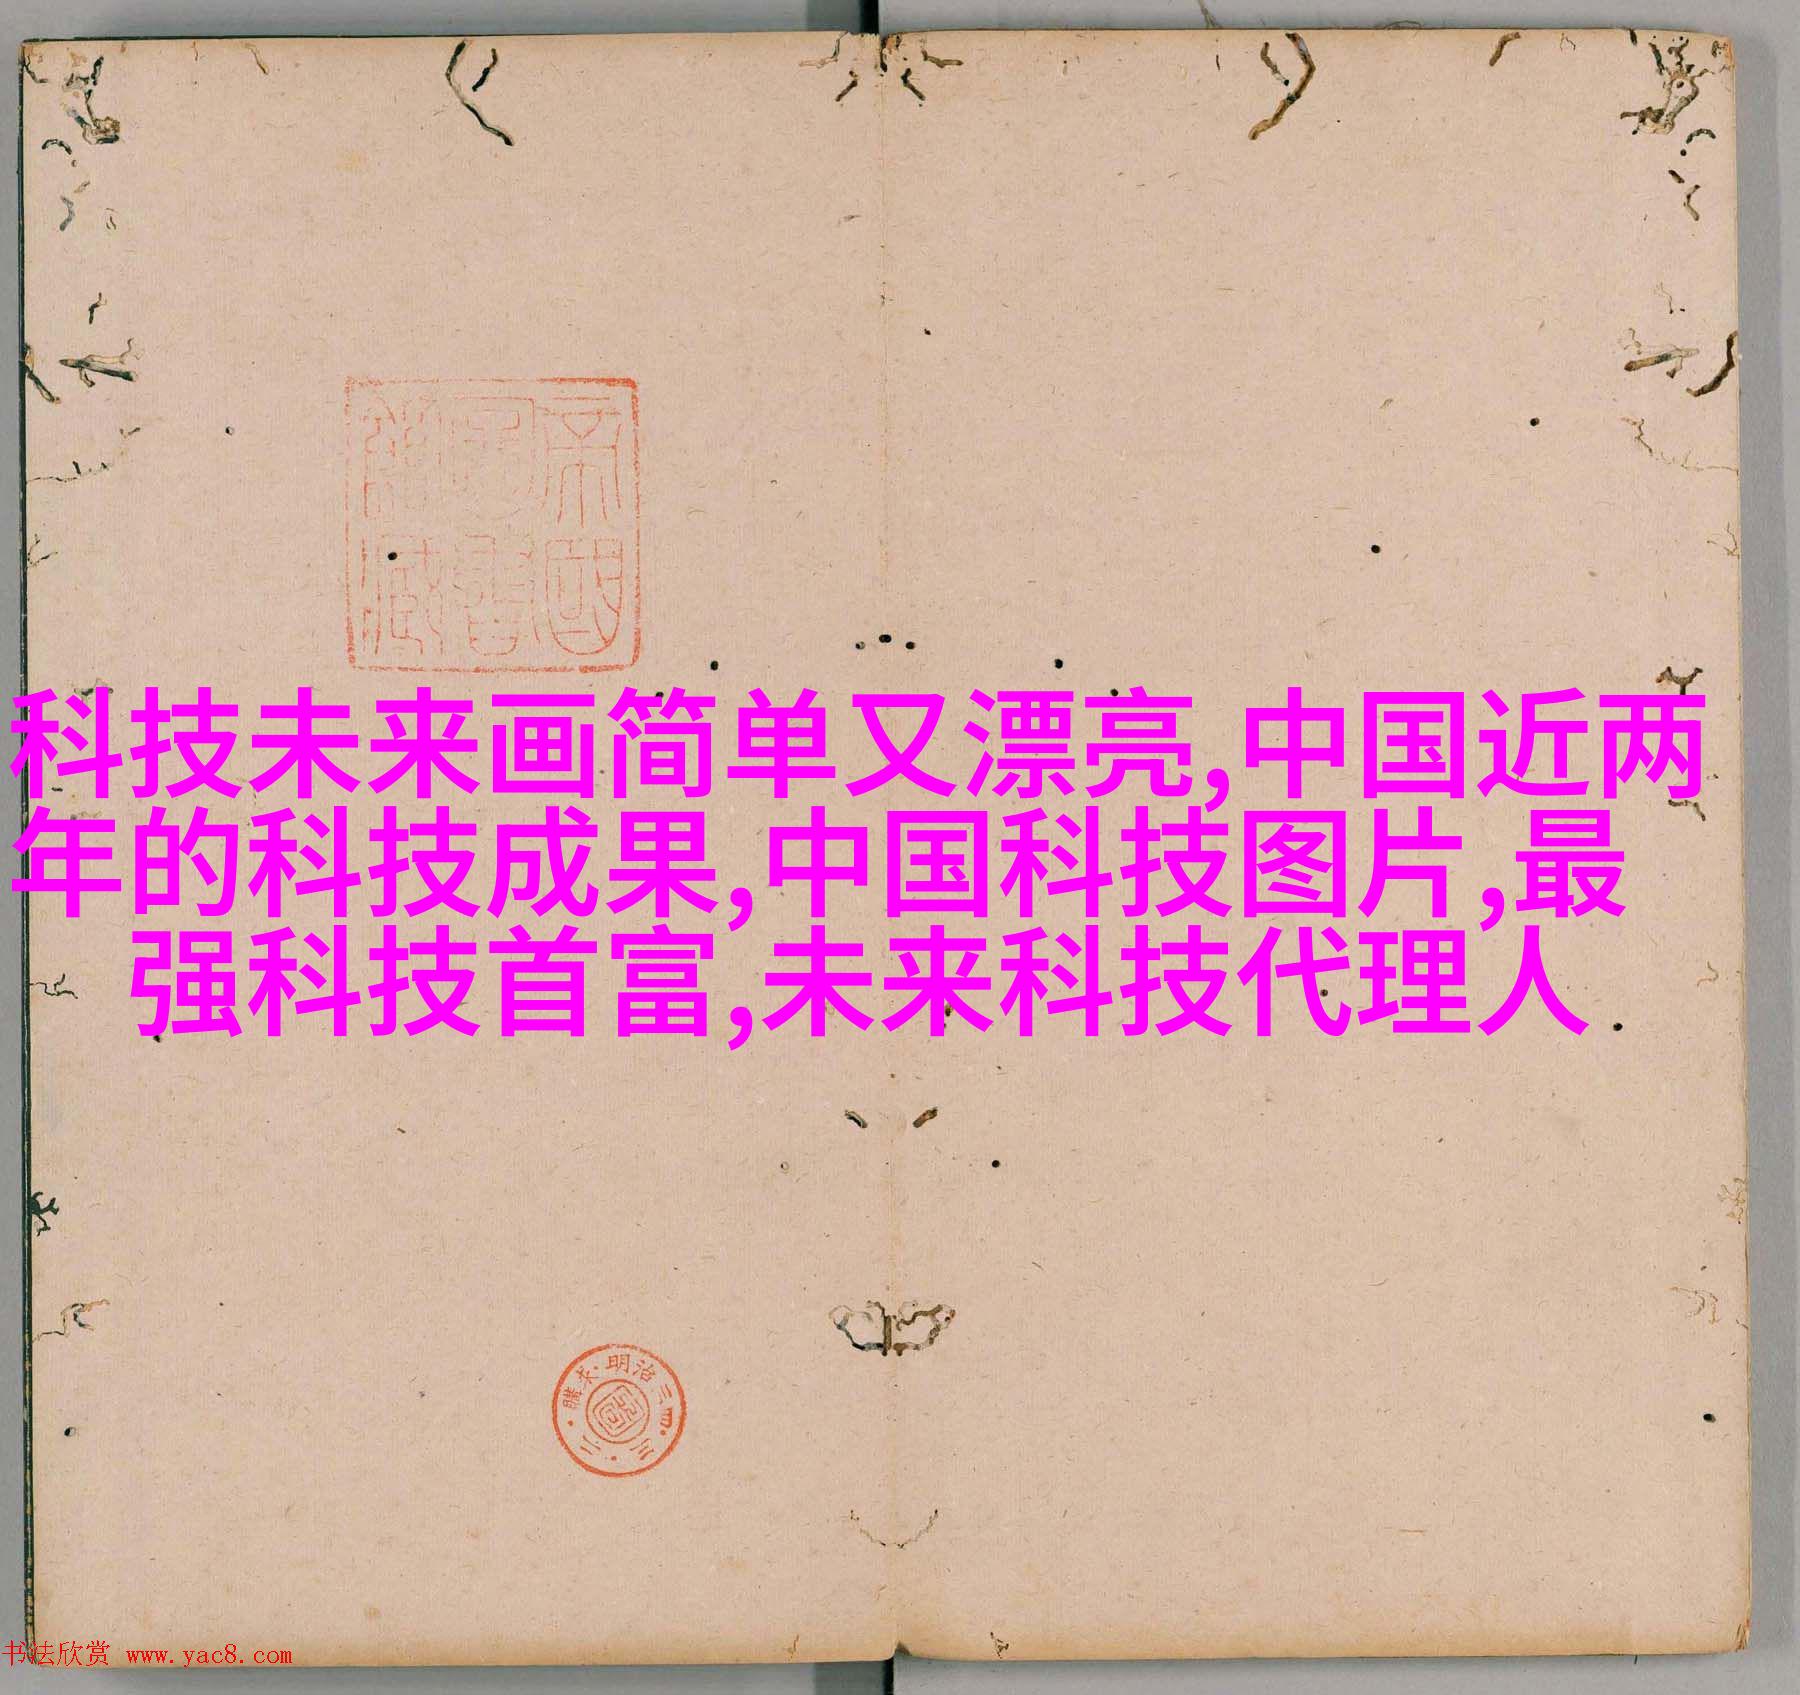 帝國
圖書
館藏
科技未来画简单又漂亮,中国近两
年的科技成果,中国科技图片,最
强科技首富,未来科技代理人
明治三四・三・二・購求・
书法欣赏 www.yac8.com